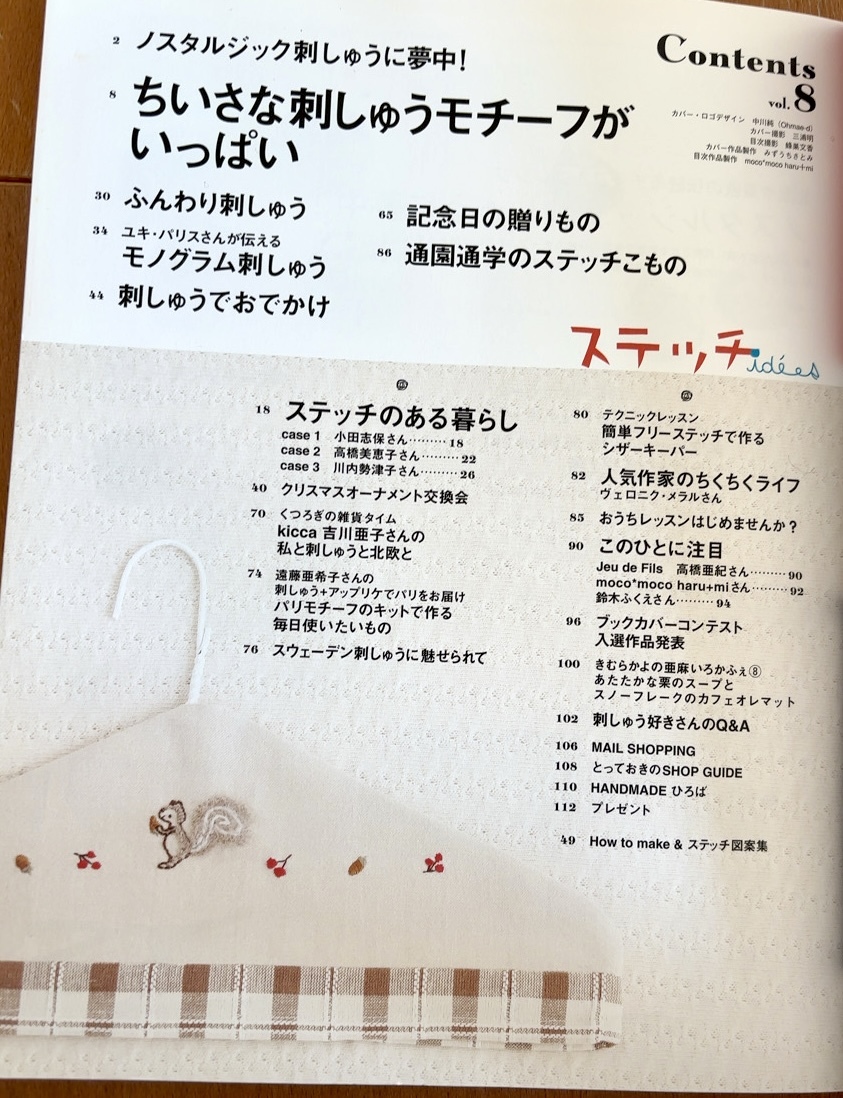 Contents
vol.8
カバー・ロゴデザイン 中川純（Ohmae-d）
カバー撮影 三浦明
目次撮影 蜂巣文香
カバー作品製作 みずうちさとみ
目次作品製作 moco*moco haru+mi
2 ノスタルジック刺しゅうに夢中！
8 ちいさな刺しゅうモチーフが
いっぱい
30 ふんわり刺しゅう
34 ユキ・パリスさんが伝える
モノグラム刺しゅう
44 刺しゅうでおでかけ
65 記念日の贈りもの
86 通園通学のステッチこもの
ステッチidées
18 ステッチのある暮らし
case 1 小田志保さん………18
case 2 高橋美恵子さん………22
case 3 川内勢津子さん………26
40 クリスマスオーナメント交換会
70 くつろぎの雑貨タイム
kicca 吉川亜子さんの
私と刺しゅうと北欧と
74 遠藤亜希子さんの
刺しゅう+アップリケでパリをお届け
パリモチーフのキットで作る
毎日使いたいもの
76 スウェーデン刺しゅうに魅せられて
80 テクニックレッスン
簡単フリーステッチで作る
シザーキーパー
82 人気作家のちくちくライフ
ヴェロニク・メラルさん
85 おうちレッスンはじめませんか？
90 このひとに注目
Jeu de Fils 高橋亜紀さん………90
moco*moco haru+miさん………92
鈴木ふくえさん………94
96 ブックカバーコンテスト
入選作品発表
100 きむらかよの亜麻いろかふぇ⑧
あたたかな栗のスープと
スノーフレークのカフェオレマット
102 刺しゅう好きさんのQ&A
106 MAIL SHOPPING
108 とっておきのSHOP GUIDE
110 HANDMADE ひろば
112 プレゼント
49 How to make & ステッチ図案集